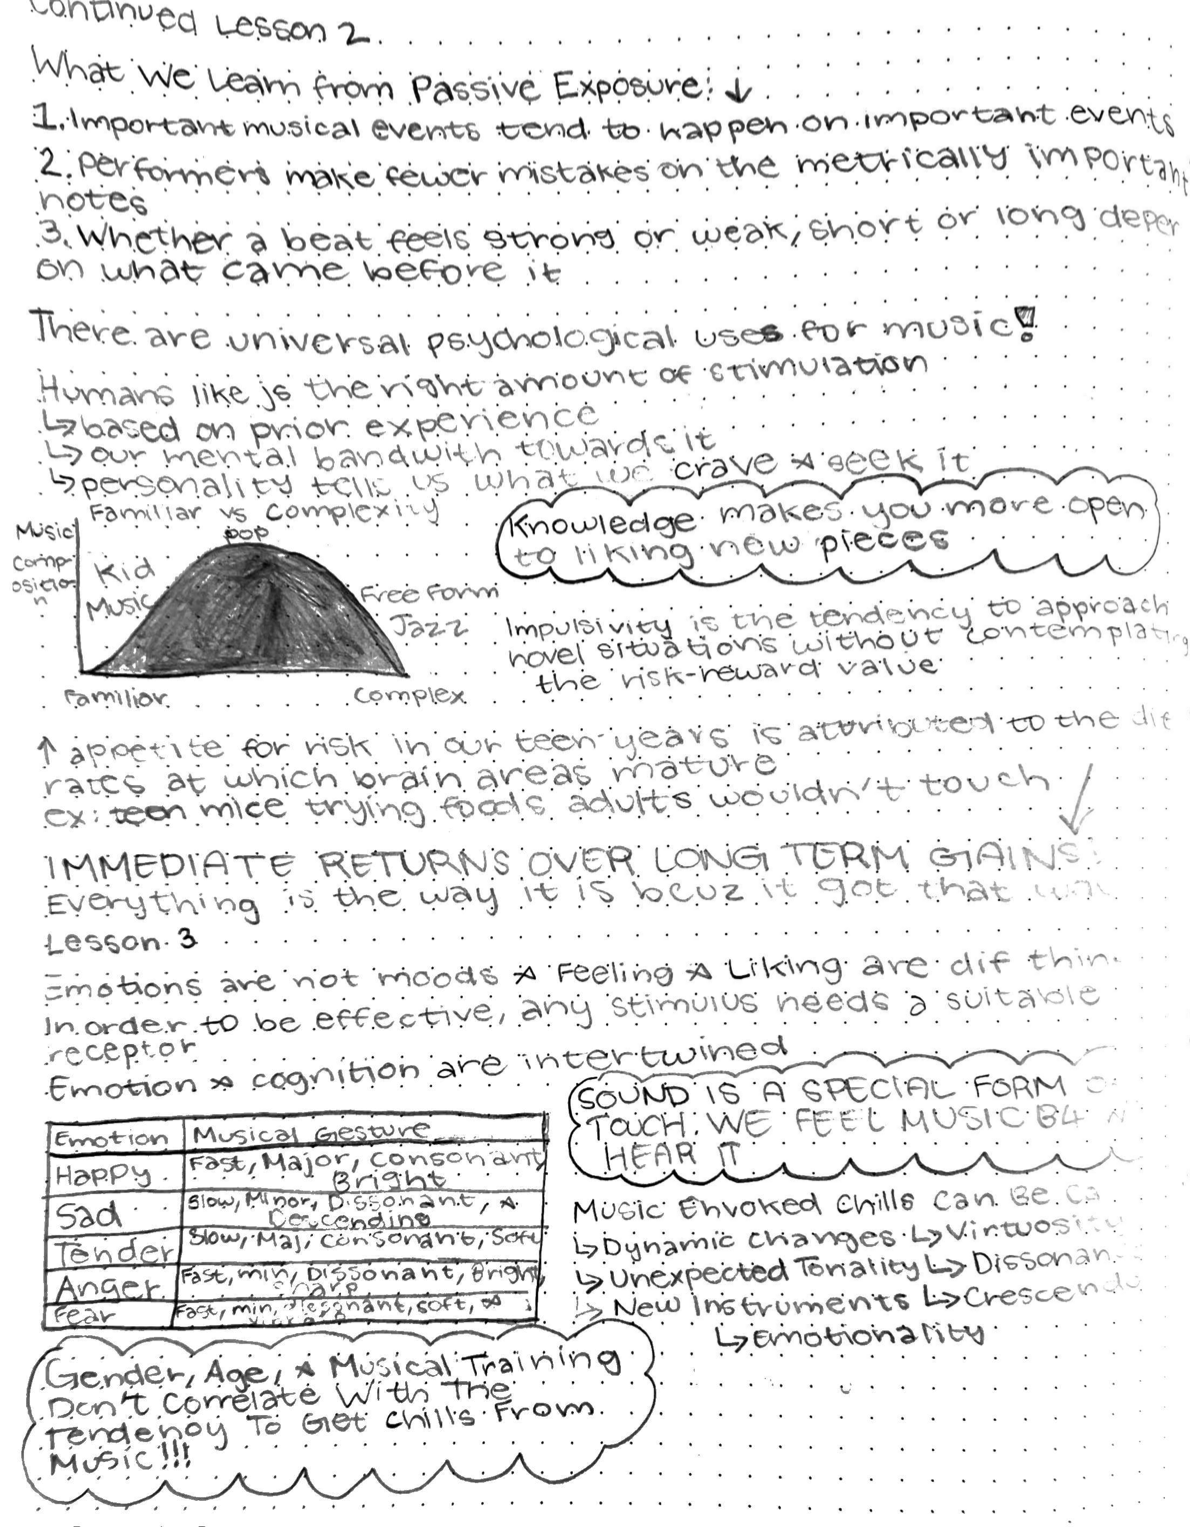 Continued Lesson 2
What We Learn from Passive Exposure: ↓
1. Important musical events tend to happen on important events
2. Performers make fewer mistakes on the metrically important
notes
3. Whether a beat feels strong or weak, short or long depen
on what came before it
There are universal psychological uses for music!
Humans like js the right amount of stimulation
↳ based on prior experience
↳ our mental bandwith towards it
↳ personality tells us what we crave & seek it
Familiar vs Complexity
Music
Comp-
ositio
n
pop
Kid
Music
Free Form
Jazz
Familiar
Complex
Knowledge makes you more open
to liking new pieces
Impulsivity is the tendency to approach
novel situations without contemplating
the risk-reward value
↑ appetite for risk in our teen years is attributed to the dif
rates at which brain areas mature
ex: teen mice trying foods adults wouldn't touch
IMMEDIATE RETURNS OVER LONG TERM GAINS
Everything is the way it is bcuz it got that way
Lesson 3
Emotions are not moods & Feeling & Liking are dif thin
In order to be effective, any stimulus needs a suitable
receptor
Emotion & cognition are intertwined
SOUND IS A SPECIAL FORM O
TOUCH. WE FEEL MUSIC B4
HEAR IT
Emotion Musical Gesture
Happy Fast, Major, Consonant,
Bright
Sad Slow, Minor, Dissonant, &
Descending
Tender Slow, Maj, Consonant, Soft
Anger Fast, min, Dissonant, Bright,
sharp
Fear Fast, min, dissonant, soft, &
Music Envoked Chills Can Be Ca
↳ Dynamic changes ↳ Virtuosity
↳ Unexpected Tonality ↳ Dissonan
↳ New Instruments ↳ Crescendo
↳ Emotionality
Gender, Age, & Musical Training
Don't Correlate With The
Tendency To Get Chills From
Music!!!